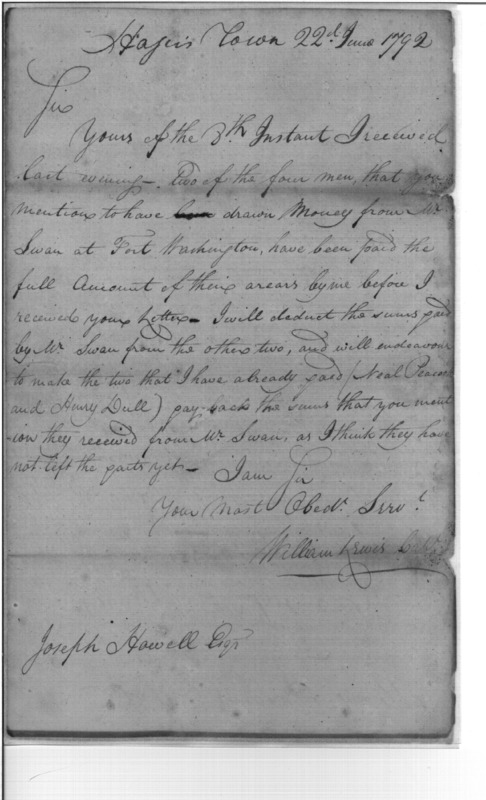 Hager's Town 22d June 1792
Sir
Yours of the 8th Instant I received
last evening - two of the four men, that you
mention to have drawn Money from Mr
Swan at Fort Washington, have been paid the
full Amount of their arears by me before I
received your Letter - I will deduct the sums paid
by Mr Swan from the other two, and will endeavour
to make the two that I have already paid (Neal
and Henry Dull) pay back the sums that you ment
ion they received from Mr Swan, as I think they have
not left the parts yet - I am Sir
Your Most Obedt Servt
William Lewis Capt
Joseph Howell Esqr